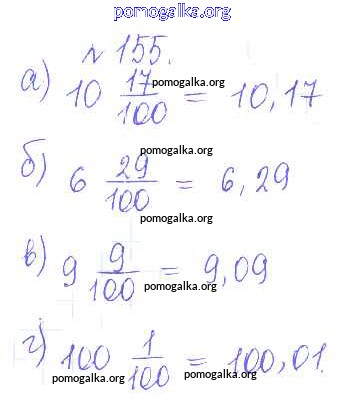 pomogalka.org
№ 155.
а) 10 17/100 = 10,17
pomogalka.org
pomogalka.org
б) 6 29/100 = 6,29
pomogalka.org
в) 9 9/100 = 9,09
pomogalka.org
г) 100 1/100 = 100,01.
pomogalka.org pomogalka.org